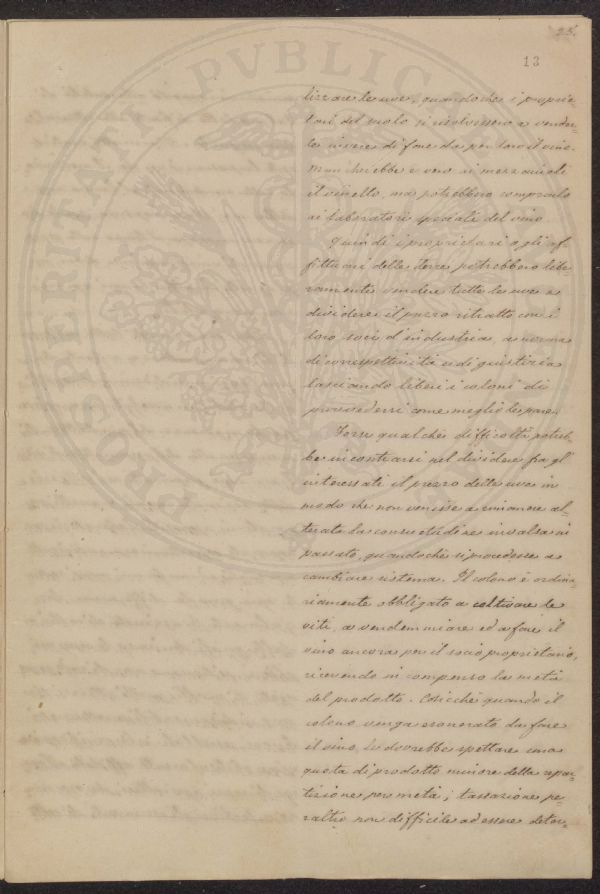 25.
13
PVBLICAE
PROSPERITATI
lizzare le uve, quando che i proprie=
tari del suolo si risolvessero a vender=
le invece di fare da per loro il vino.
Mancherebbe è vero ai mezzaiuoli
il vinello, ma potrebbero comprarlo
ai laboratori speciali del vino.
Quindi i proprietari e gli af=
fittuari delle terre potrebbero libe=
ramente vendere tutte le uve e
dividere il prezzo ritratto con i
loro soci d'industria, a norma
di correspettività e di giustizia
lasciando liberi i coloni di
provvedersi come meglio le pare.
Forse qualche difficoltà potreb=
be incontrarsi nel dividere fra gl'
interessati il prezzo delle uve in
modo che non venisse a rimanere al=
terata la consuetudine invalsa in
passato, quando che si procedesse a
cambiare sistema. Il colono è ordina=
riamente obbligato a coltivare le
viti, a vendemmiare ed a fare il
vino ancora per il socio proprietario,
ricevendo in compenso la metà
del prodotto. Cosicché quando il
colono venga esonerato da fare
il vino, le dovrebbe spettare una
quota di prodotto minore della repar=
tizione per metà; tassazione pe=
raltro non difficile ad essere deter=